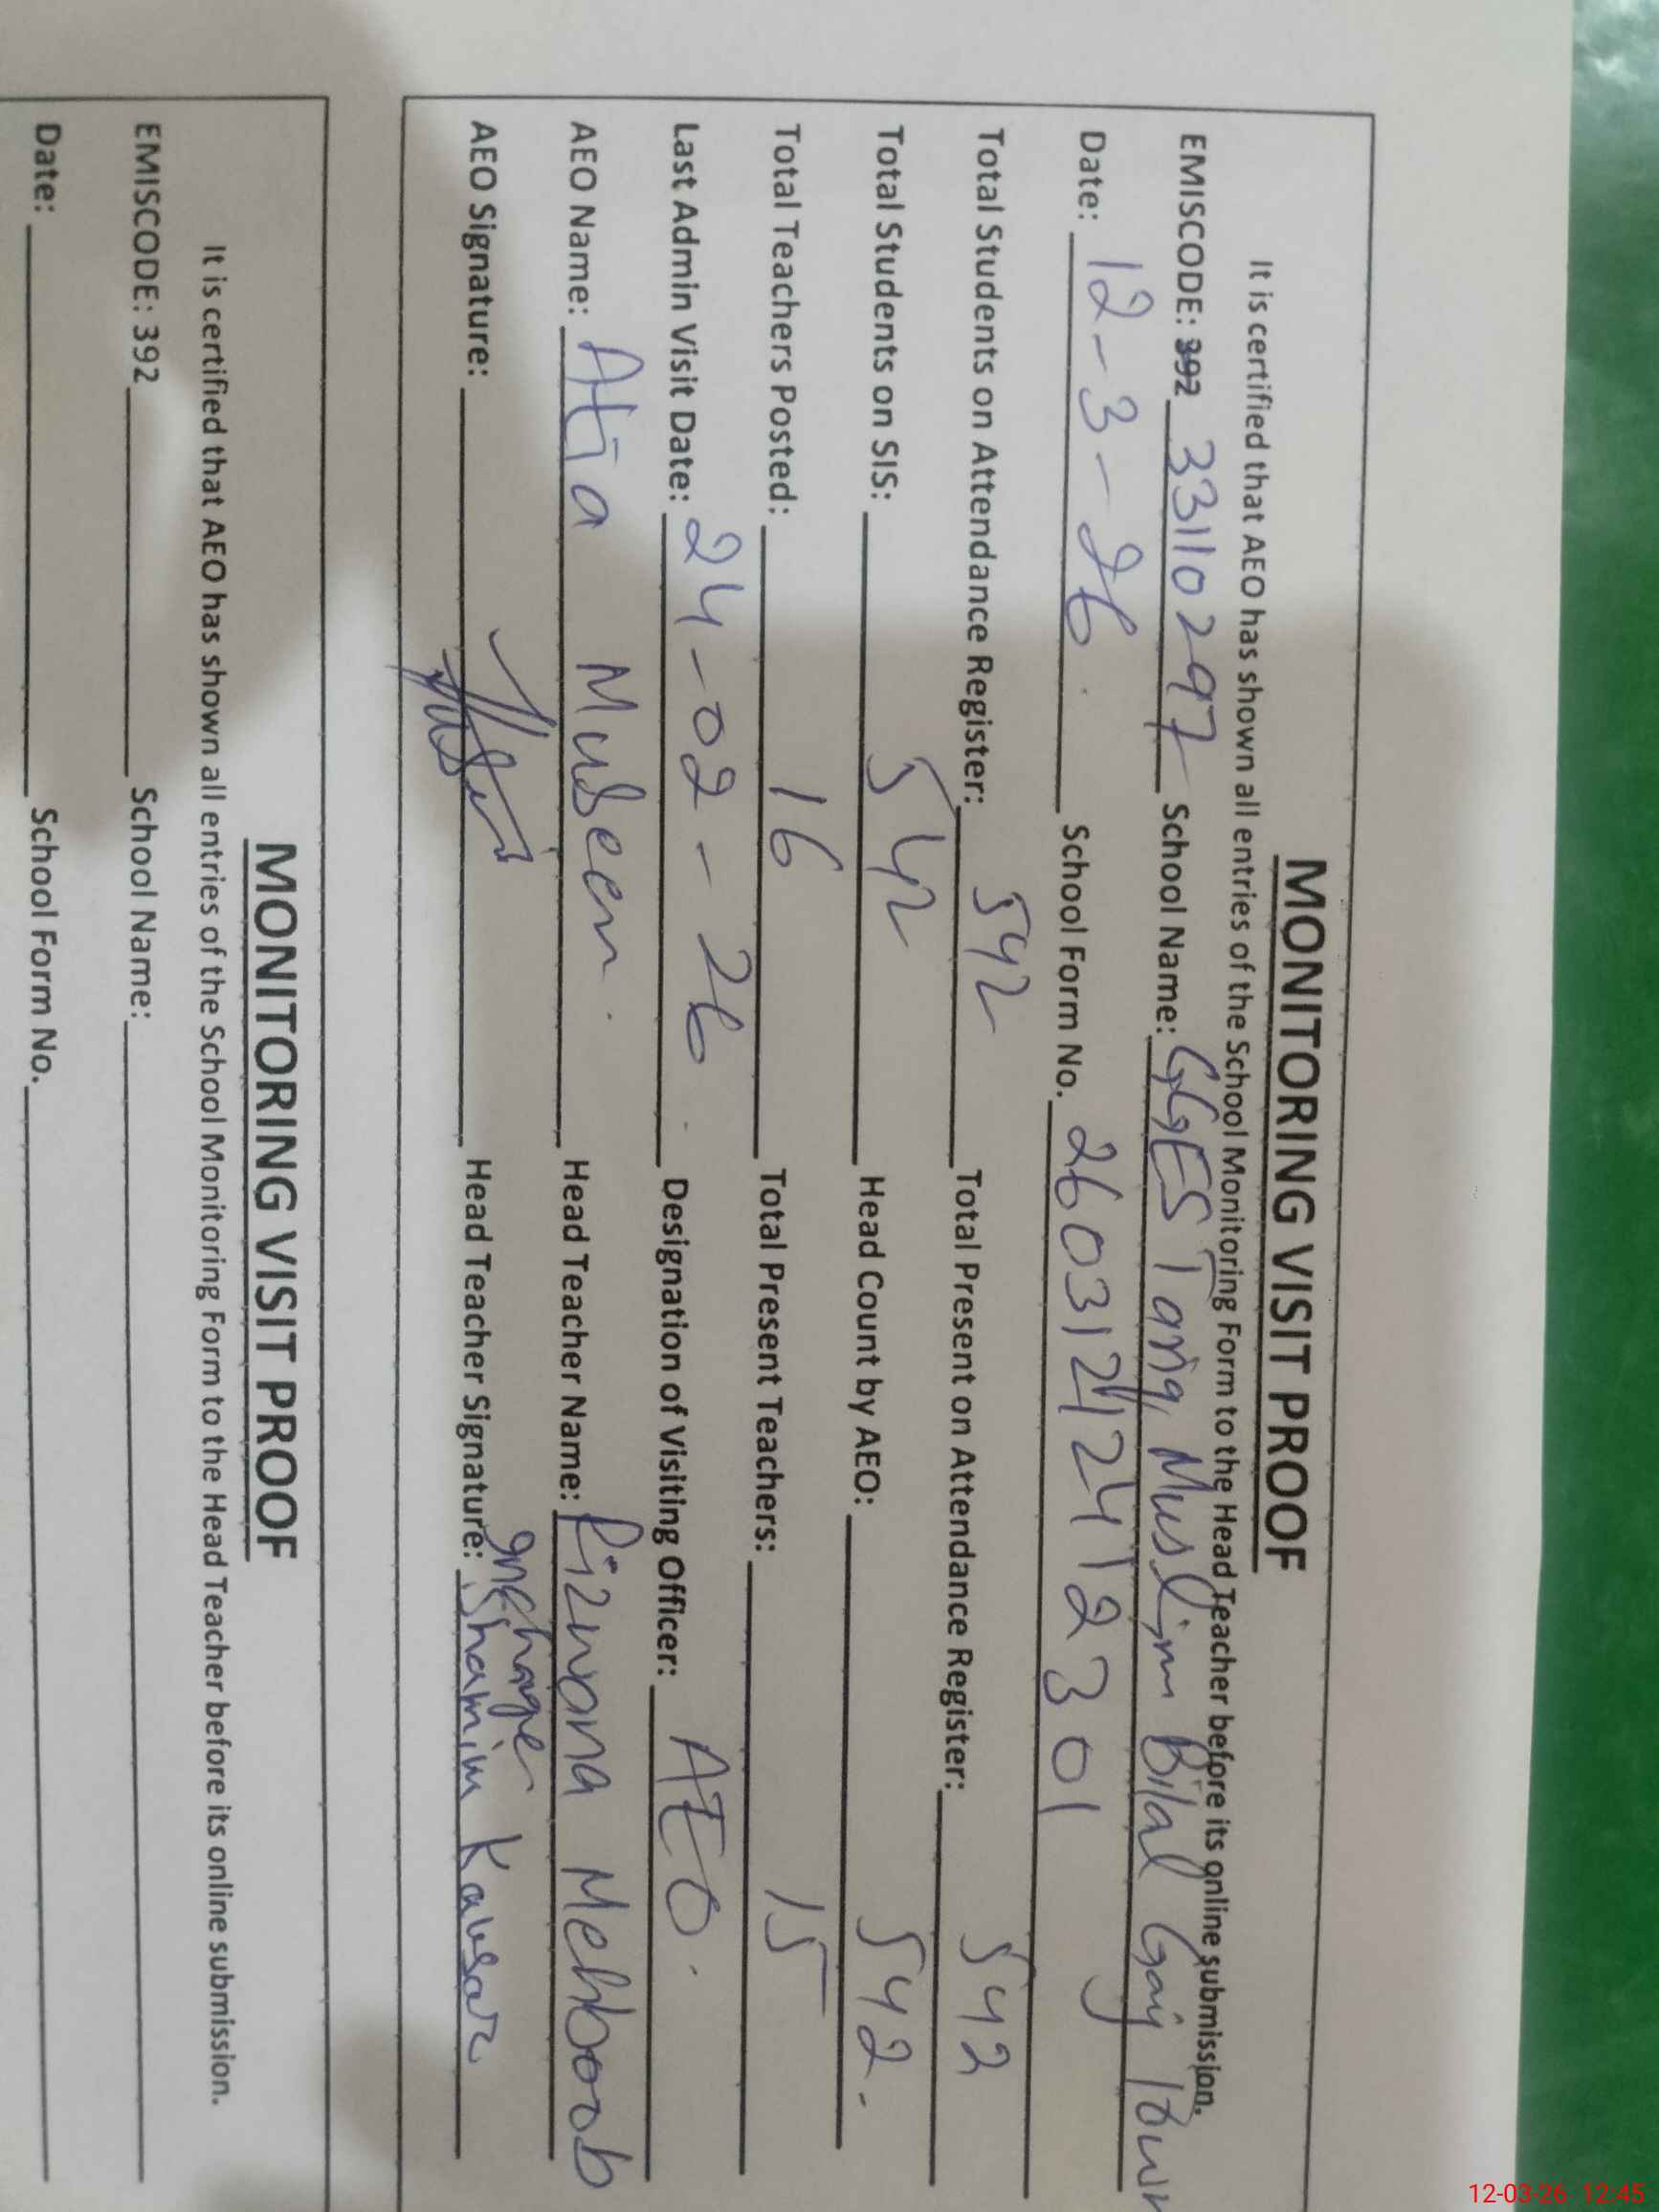 MONITORING VISIT PROOF
It is certified that AEO has shown all entries of the School Monitoring Form to the Head Teacher before its online submission.
EMISCODE: 392 33110297 School Name: GGES Tariq Muslim Bilal Gaj Town
Date: 12-3-26. School Form No. 260312124112301
Total Students on Attendance Register: 542 Total Present on Attendance Register: 542
Total Students on SIS: 542 Head Count by AEO: 542.
Total Teachers Posted: 16 Total Present Teachers: 15
Last Admin Visit Date: 24-02-26. Designation of Visiting Officer: AEO.
AEO Name: Atia Mubeen. Head Teacher Name: Rizwana Mehboob
AEO Signature: Head Teacher Signature: Incharge Shamim Kausar
MONITORING VISIT PROOF
It is certified that AEO has shown all entries of the School Monitoring Form to the Head Teacher before its online submission.
EMISCODE: 392 School Name:
Date: School Form No.
12-03-26 12:45